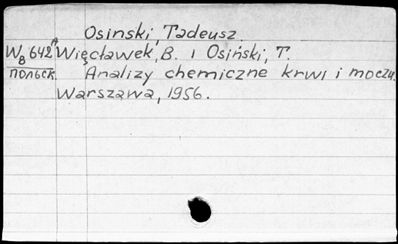 Osinski, Tadeusz.
W8 642A Więcławek, B. i Osiński, T.
польск. Analizy chemiczne krwi i moczu.
Warszawa, 1956.